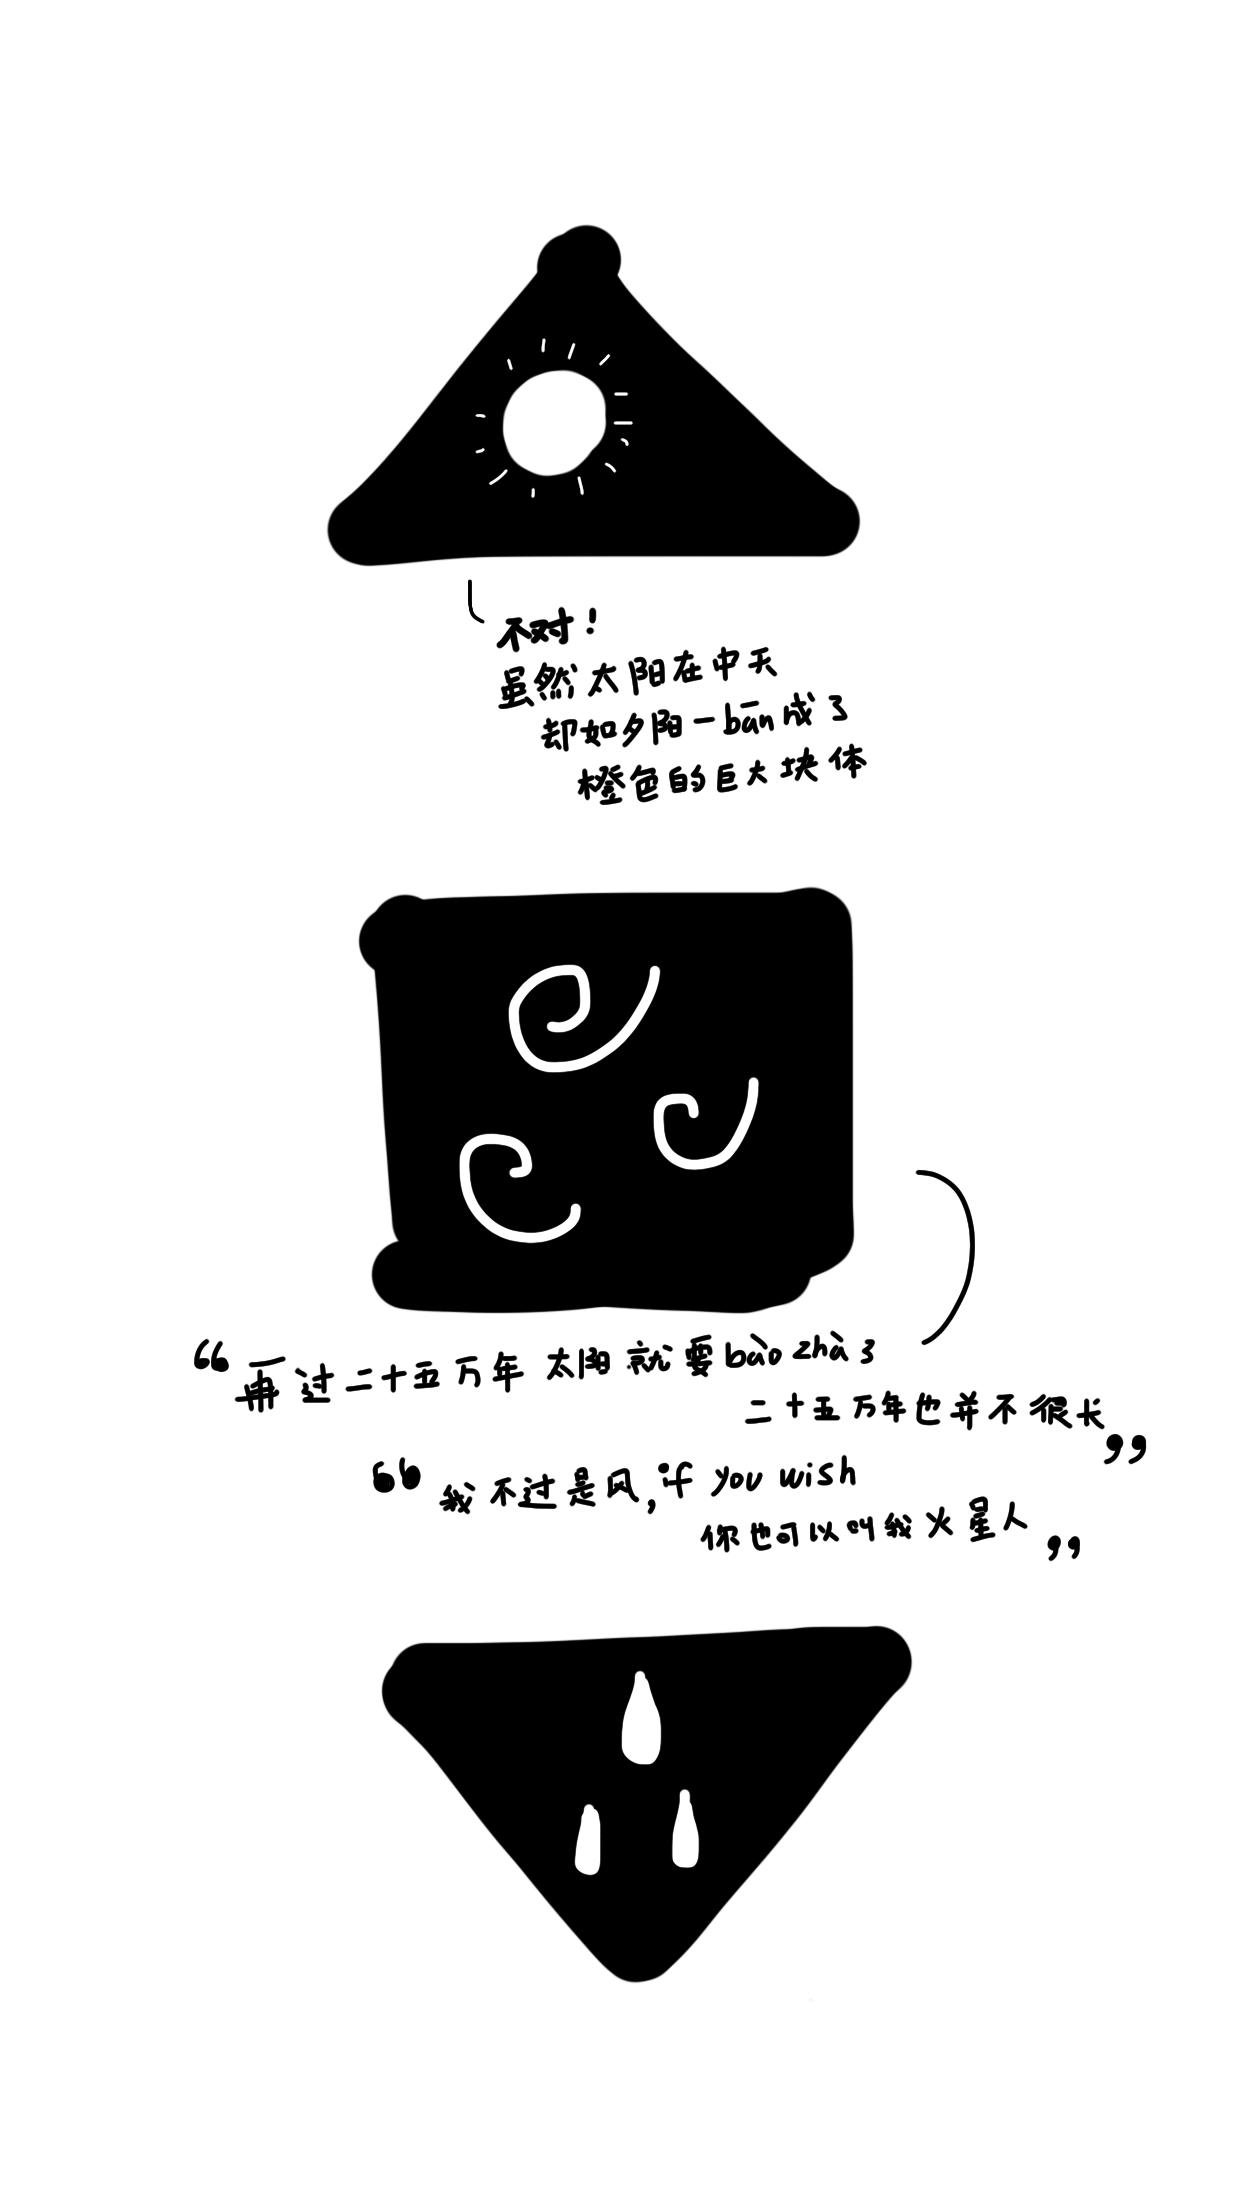 不对！
虽然太阳在中天
却如夕阳一bān成了
橙色的巨大块体
“再过二十五万年 太阳就要bào zhà了
二十五万年也并不很长”
“我不过是风,if you wish
你也可以叫我火星人”